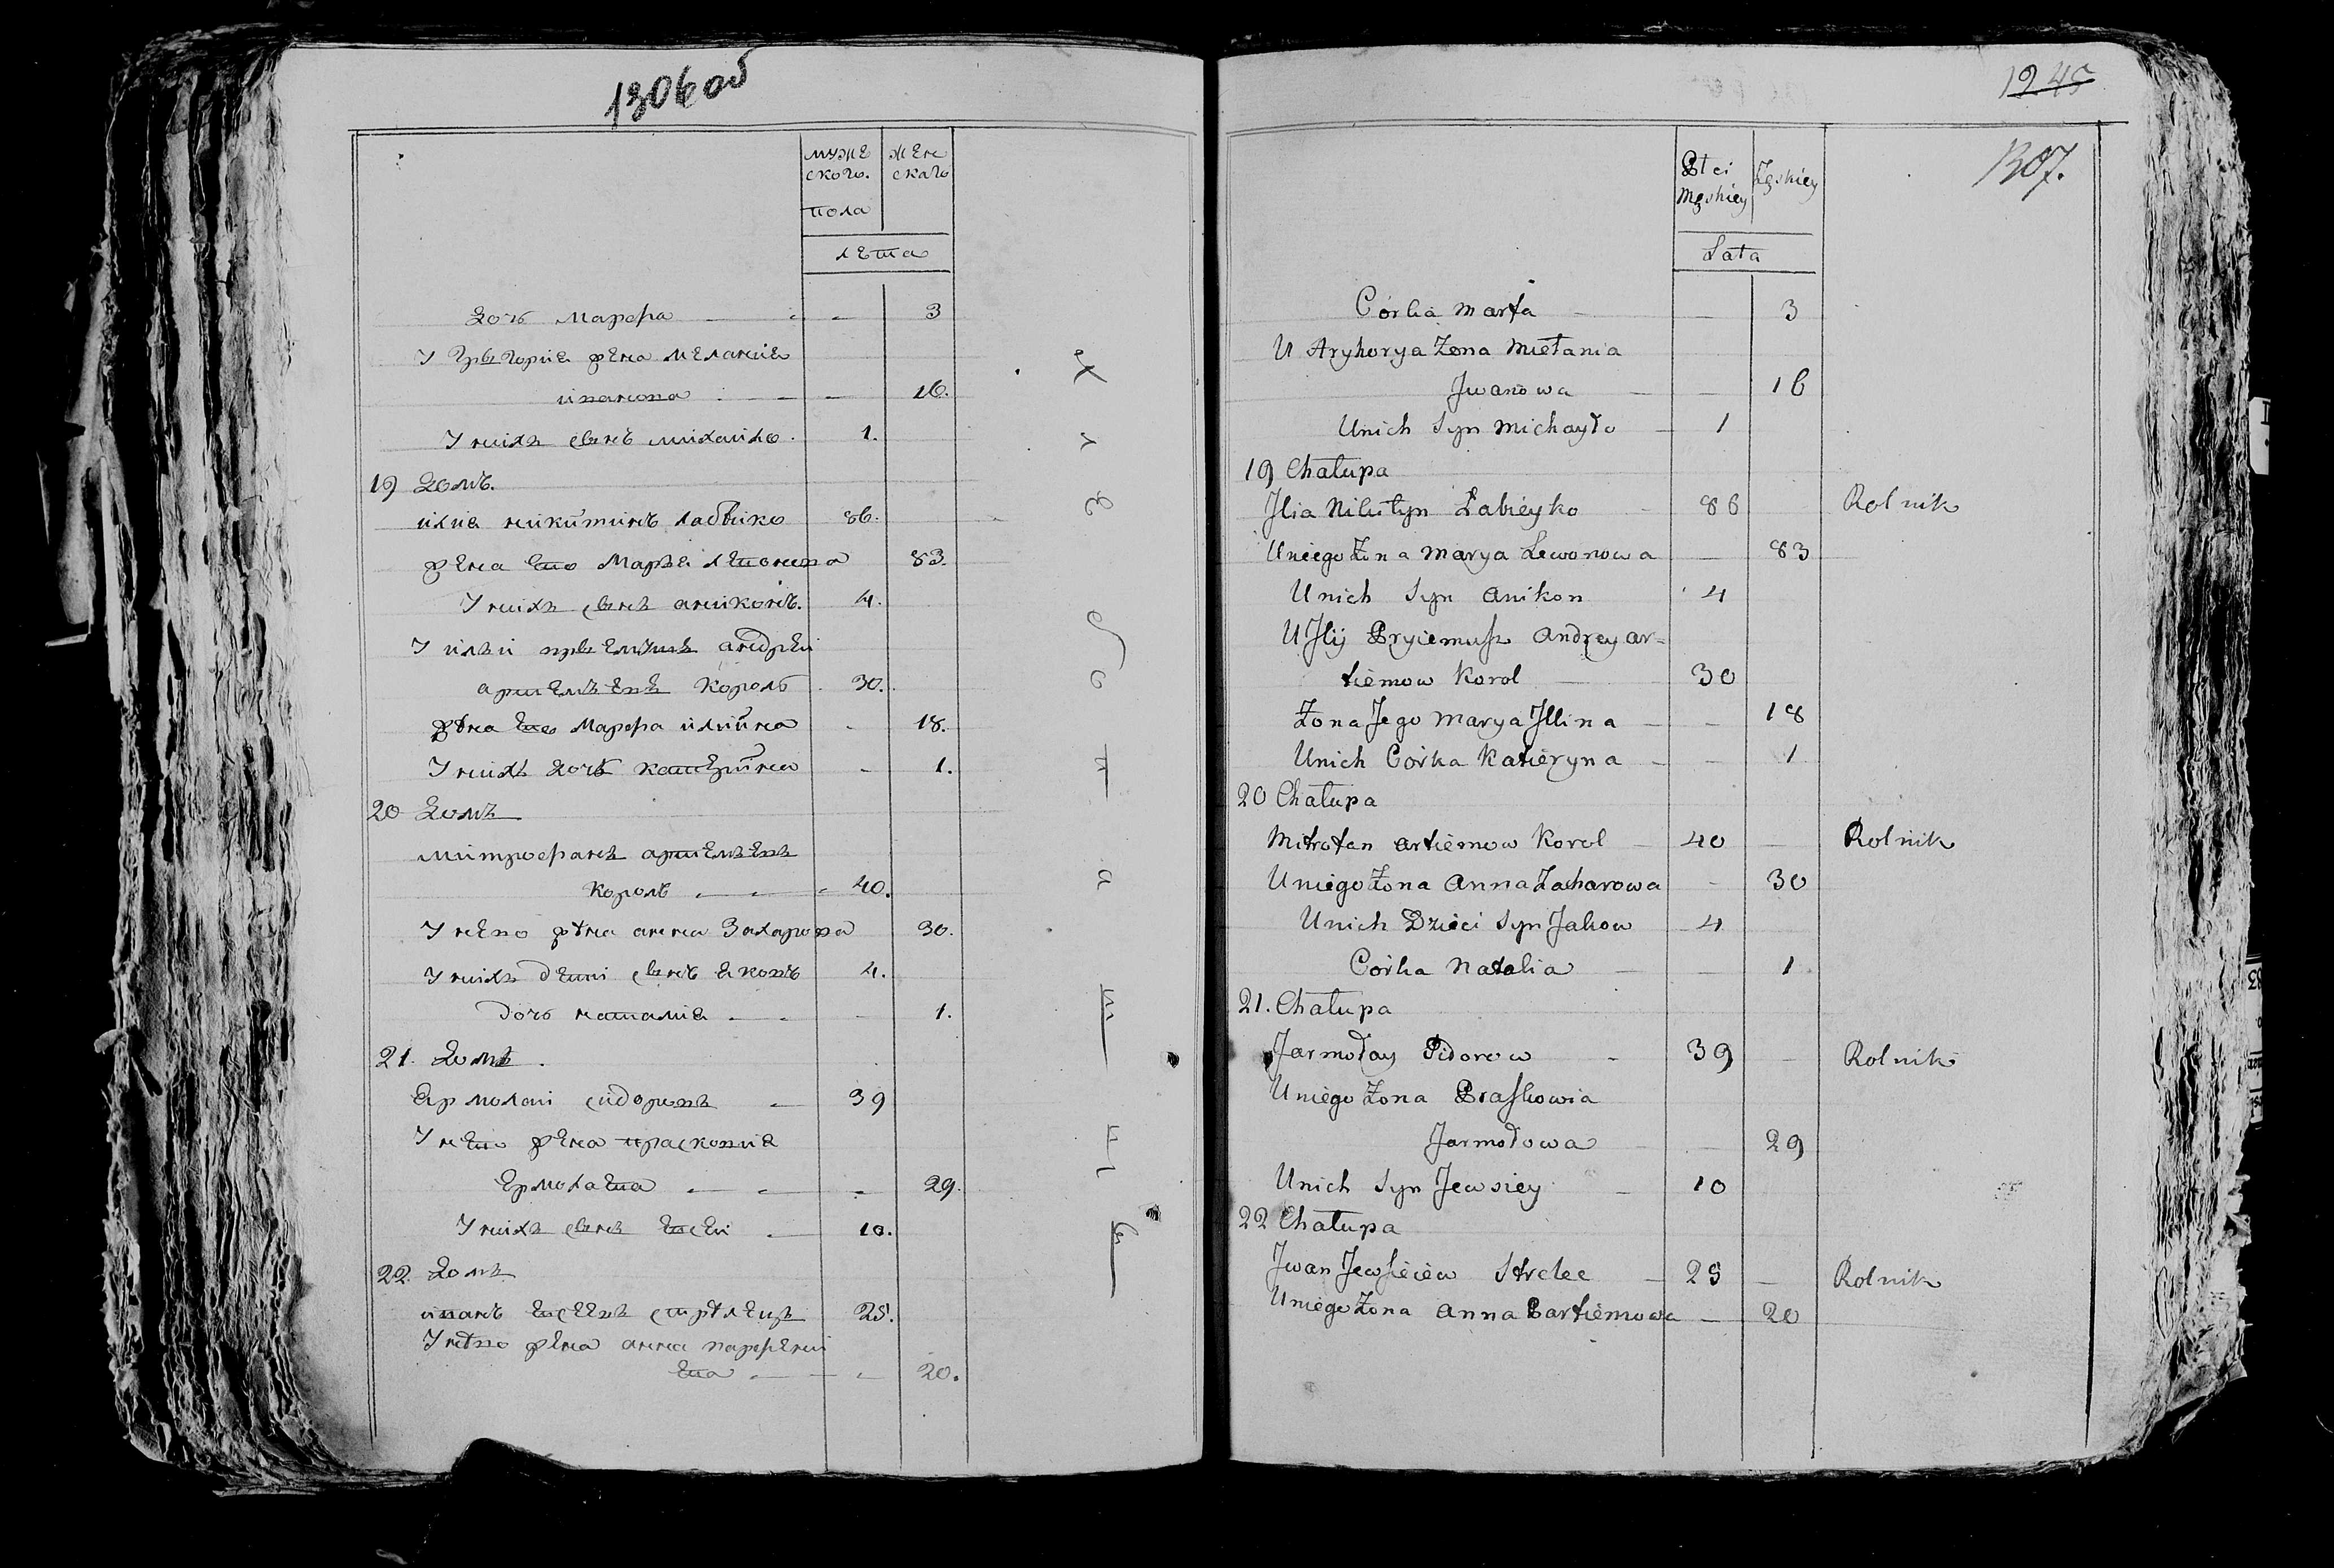 1306 об
муже
ского.
жен
скаго
пола
лета
дочь Марфа 3
У Грыгория жена Мелания
иванова 16.
У нихъ сынъ михаило. 1.
19 домъ.
илия никитинъ лабѣико 86.
жена его Марья левонова 83.
У нихъ сынъ аниконъ. 4.
У ильи прыемышъ андреи
артемьевъ король 30.
жѣна его Марфа илїина 18.
У нихъ дочь катерина 1.
20 домъ
митрофанъ артемьевъ
король 40.
У нево жѣна анна Захарова 30.
У нихъ дети сынъ яковъ 4.
дочь наталия 1.
21. домъ.
Ярмолаи сидоровъ 39
У нево жена прасковия
Ермолаева 29.
У нихъ сынъ евсеи 10.
22. домъ
иванъ евсеевъ стрѣлецъ 25.
У нѣво жена анна парфени
ева 20.
Х
л
е
б
о
п
а
ш
е
ц
1245
1307.
Płci
Męskiey
Żęskiey
Lata
Córka Marfa 3
U Hryhorya Żona Miełania
Jwanowa 16
Unich Syn Michayło 1
19 Chałupa
Jlia Nikityn Łabieyko 86 Rolnik
Uniego Żona Marya Lewonowa 83
Unich Syn Anikon 4
U Jlij Pryiemysz Andrey Ar=
tiemow Korol 30
Żona Jego Marya Jllina 18
Unich Córka Katieryna 1
20 Chałupa
Mitrofan Artiemow Korol 40 Rolnik
Uniego Żona Anna Zacharowa 30
Unich Dzieci Syn Jakow 4
Córka Natalia 1
21. Chałupa
Jarmołay Sidorow 39 Rolnik
Uniego Żona Praskowia
Jarmołowa 29
Unich Syn Jewsiey 10
22 Chałupa
Jwan Jewsieiew Strelec 25 Rolnik
Uniego Żona Anna Partiemowa 20